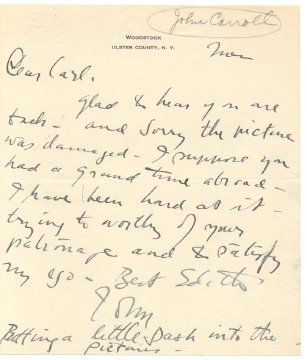 John Carroll
WOODSTOCK
ULSTER COUNTY, N. Y.
Dear Carl.
Glad to hear you are
back - and sorry the picture
was damaged - I suppose you
had a grand time abroad -
I have been hard at it -
trying to worthy of your
patronage and to satisfy
my ego - Best
John
Putting a little dash into the
pictures -